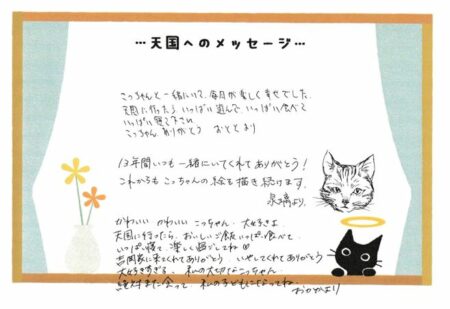 …天国へのメッセージ…
こっちゃんと一緒にいて、毎日が楽しく幸せでした。
天国に行ったら、いっぱい遊んで、いっぱい食べて
いっぱい寝て下さい
こっちゃん ありがとう おととより
13年間いつも一緒にいてくれてありがとう!
これからもこっちゃんの絵を描き続けます。
より
かわいい かわいい こっちゃん。大好きよ
天国に行ったら、おいしいご飯いっぱい食べて
いっぱい寝て 楽しく過ごしてね♡
吉岡家に来てくれてありがとう いやしてくれてありがとう
大好きすぎる 私の大切なこっちゃん
絶対また会って 私の子どもになってね
おかかより